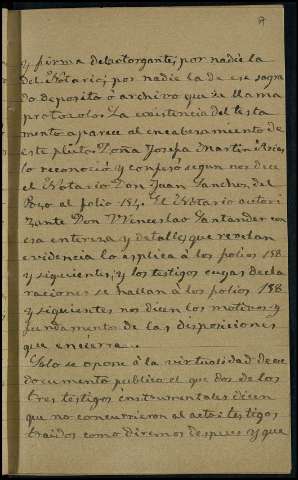 y firma del otorgante, por nadie la
del Notario, por nadie la de ese sagra
do deposito ó archivo que se llama
protocolo. La existencia del testa
mento aparece al encabezamiento de
este pleito. Doña Josefa Martin Rias
lo reconoció y confesó segun nos dice
el Notario Don Juan Sanchez del
Pozo al folio 154. El Notario autori
zante Don Wenceslao Santander con
esa entereza y detalles que revelan
evidencia lo esplica á los folios 158
y siguientes, y los testigos cuyas decla
raciones se hallan á los folios 138
y siguientes nos dicen los motivos y
fundamentos de las disposiciones
que encierra.
Solo se opone á la virtualidad de ese
documento publico el que dos de los
tres testigos instrumentales dicen
que no concurrieron al acto: testigos
traidos como diremos despues y que